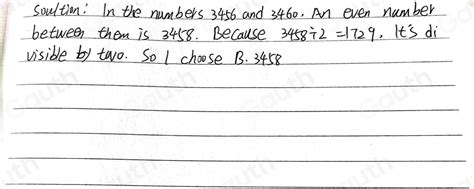 Soultion: In the numbers 3456 and 3460. An even number
between them is 3458. Because 3458÷2=1729. It's di
visible by two. So I choose B. 3458